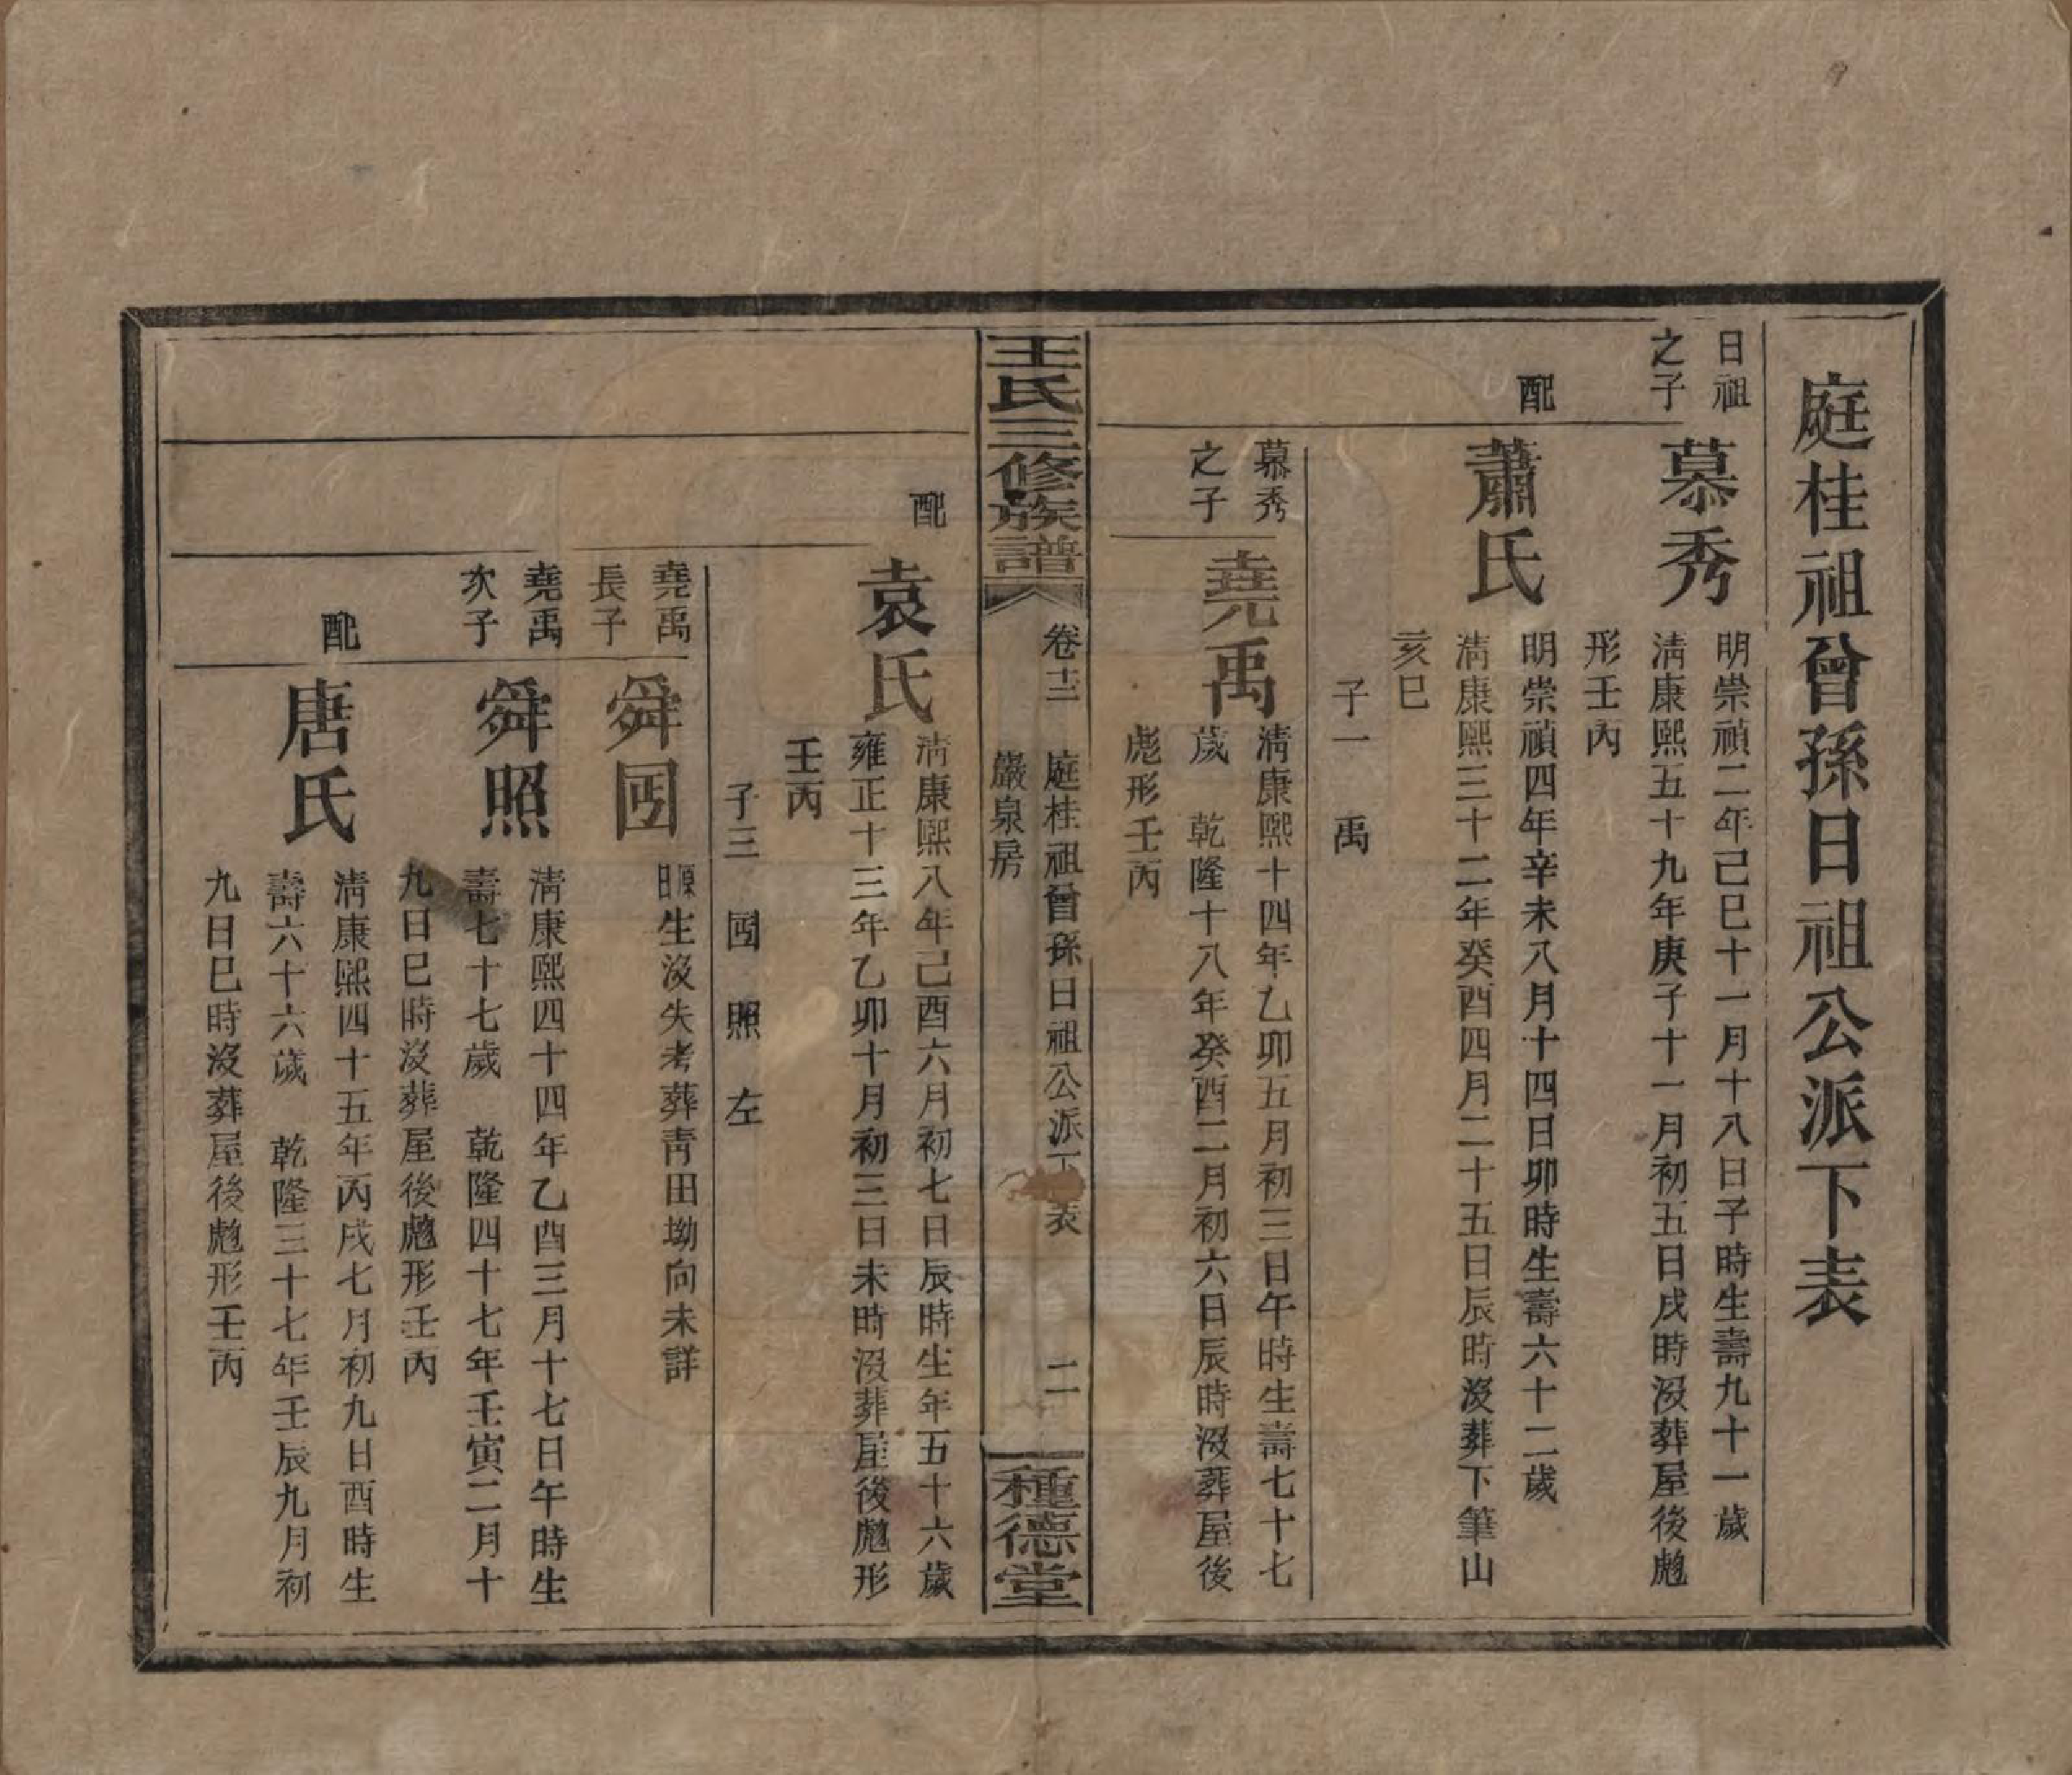 庭桂祖曾孫日祖公派下表
日祖
之子
慕秀
明崇禎二年己巳十一月十八日子時生壽九十一歲
淸康熙五十九年庚子十一月初五日戌時沒葬屋後虺
形壬丙
配
蕭氏
明崇禎四年辛未八月十四日卯時生壽六十二歲
淸康熙三十二年癸酉四月二十五日辰時沒葬下筆山
亥巳
子一 禹
慕秀
之子
堯禹
淸康熙十四年乙卯五月初三日午時生壽七十七
歲 乾隆十八年癸酉二月初六日辰時沒葬屋後
彪形壬丙
王氏三修族譜
卷十三 庭桂祖曾孫日祖公派下表 二
巖泉房
種德堂
配
袁氏
淸康熙八年己酉六月初七日辰時生年五十六歲
雍正十三年乙卯十月初三日未時沒葬屋後虺形
壬丙
子三 囶 照 左
堯禹
長子
舜囶
原日生沒失考葬靑田坳向未詳
堯禹
次子
舜照
淸康熙四十四年乙酉三月十七日午時生
壽七十七歲 乾隆四十七年壬寅二月十
九日巳時沒葬屋後虺形壬丙
配
唐氏
淸康熙四十五年丙戌七月初九日酉時生
壽六十六歲 乾隆三十七年壬辰九月初
九日巳時沒葬屋後虺形壬丙